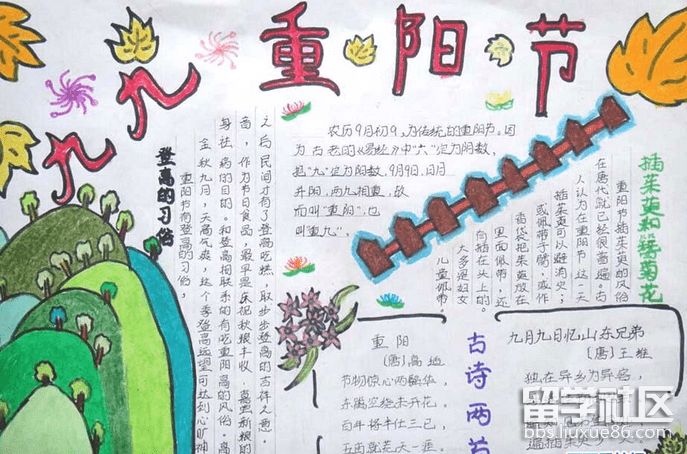 九九重阳节
登高的习俗
重阳节有登高的习俗,
金秋九月,天高气爽,这个季登高远望可达到心旷神
身祛病的目的。和登高相联系的有吃重阳高的风俗。高
音,作为节日食品,最早是庆祝秋粮丰收、喜尝新粮的
之后民间才有了登高吃糕,取步步登高的吉祥之意。
农历9月初9,为传统的重阳节。因
为古老的《易经》中“六”定为阴数,
把“九”定为阳数,9月9日,日月
并阳,两九相重,故
而叫“重阳”,也
叫重九”。
插茱萸和簪菊花
重阳节插茱萸的风俗
在唐代就已经很普遍。古
人认为在重阳节这一天
插茱萸可以避消灾;
或佩带于臂,或作
香袋把茱萸放在
里面佩带,还
有插在头上的。
大多是妇女
儿童佩带。
古诗两首
重阳
[唐]高适
节物惊心两鬓华,
东篱空绕未开花。
百年将半仕三已,
五亩就荒天一涯。
九月九日忆山东兄弟
[唐]王维
独在异乡为异客,
遍插茱萸
留学社区
bbs.liuxue86.com